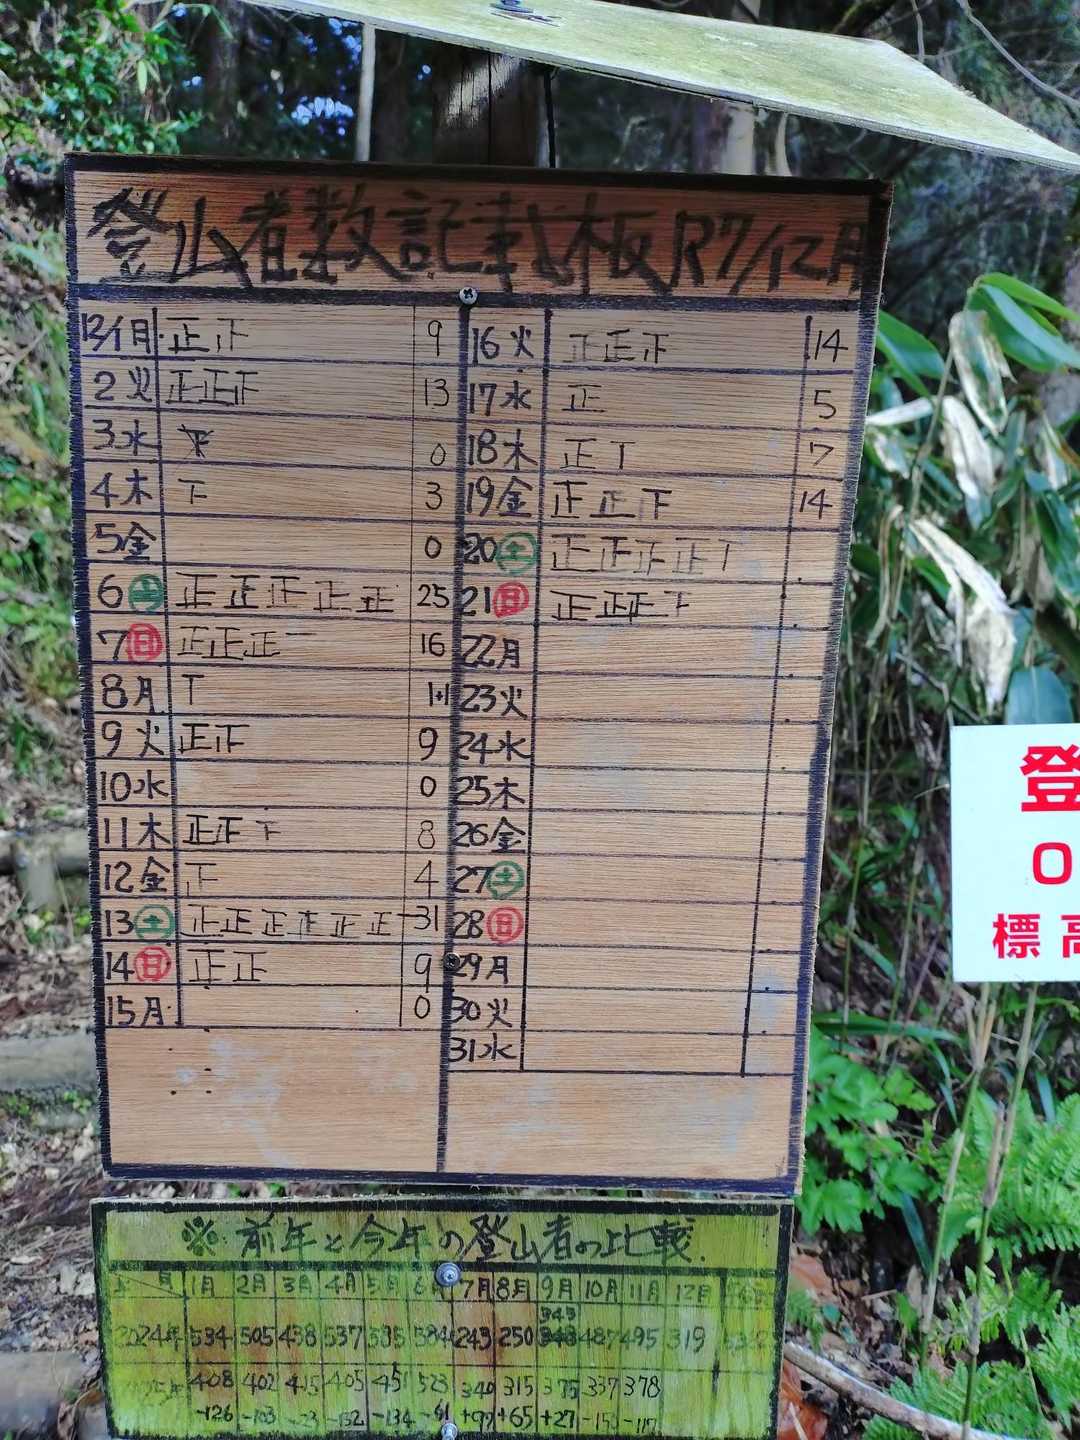 登山者数記載板 R7/12月
12/1月 正下 9
2火 正正下 13
3水 0
4木 下 3
5金 0
6土 正正正正正 25
7日 正正正一 16
8月 T 1+1
9火 正正 9
10水 0
11木 正正下 8
12金 正 4
13土 正正正正正正一 31
14日 正正 9
15月 0
16火 正正正 14
17水 正 5
18木 正T 7
19金 正正正 14
20土 正正正正T
21日 正正正下
22月
23火
24水
25木
26金
27土
28日
29月
30火
31水
※前年と今年の登山者の比較
月 1月 2月 3月 4月 5月 6月 7月 8月 9月 10月 11月 12月
343
2024年 534 505 438 537 585 584 243 250 487 495 319
408 402 415 405 451 523 340 315 375 337 378
-126 -103 -23 -132 -134 -61 +97 +65 +27 -117
登
0
標高